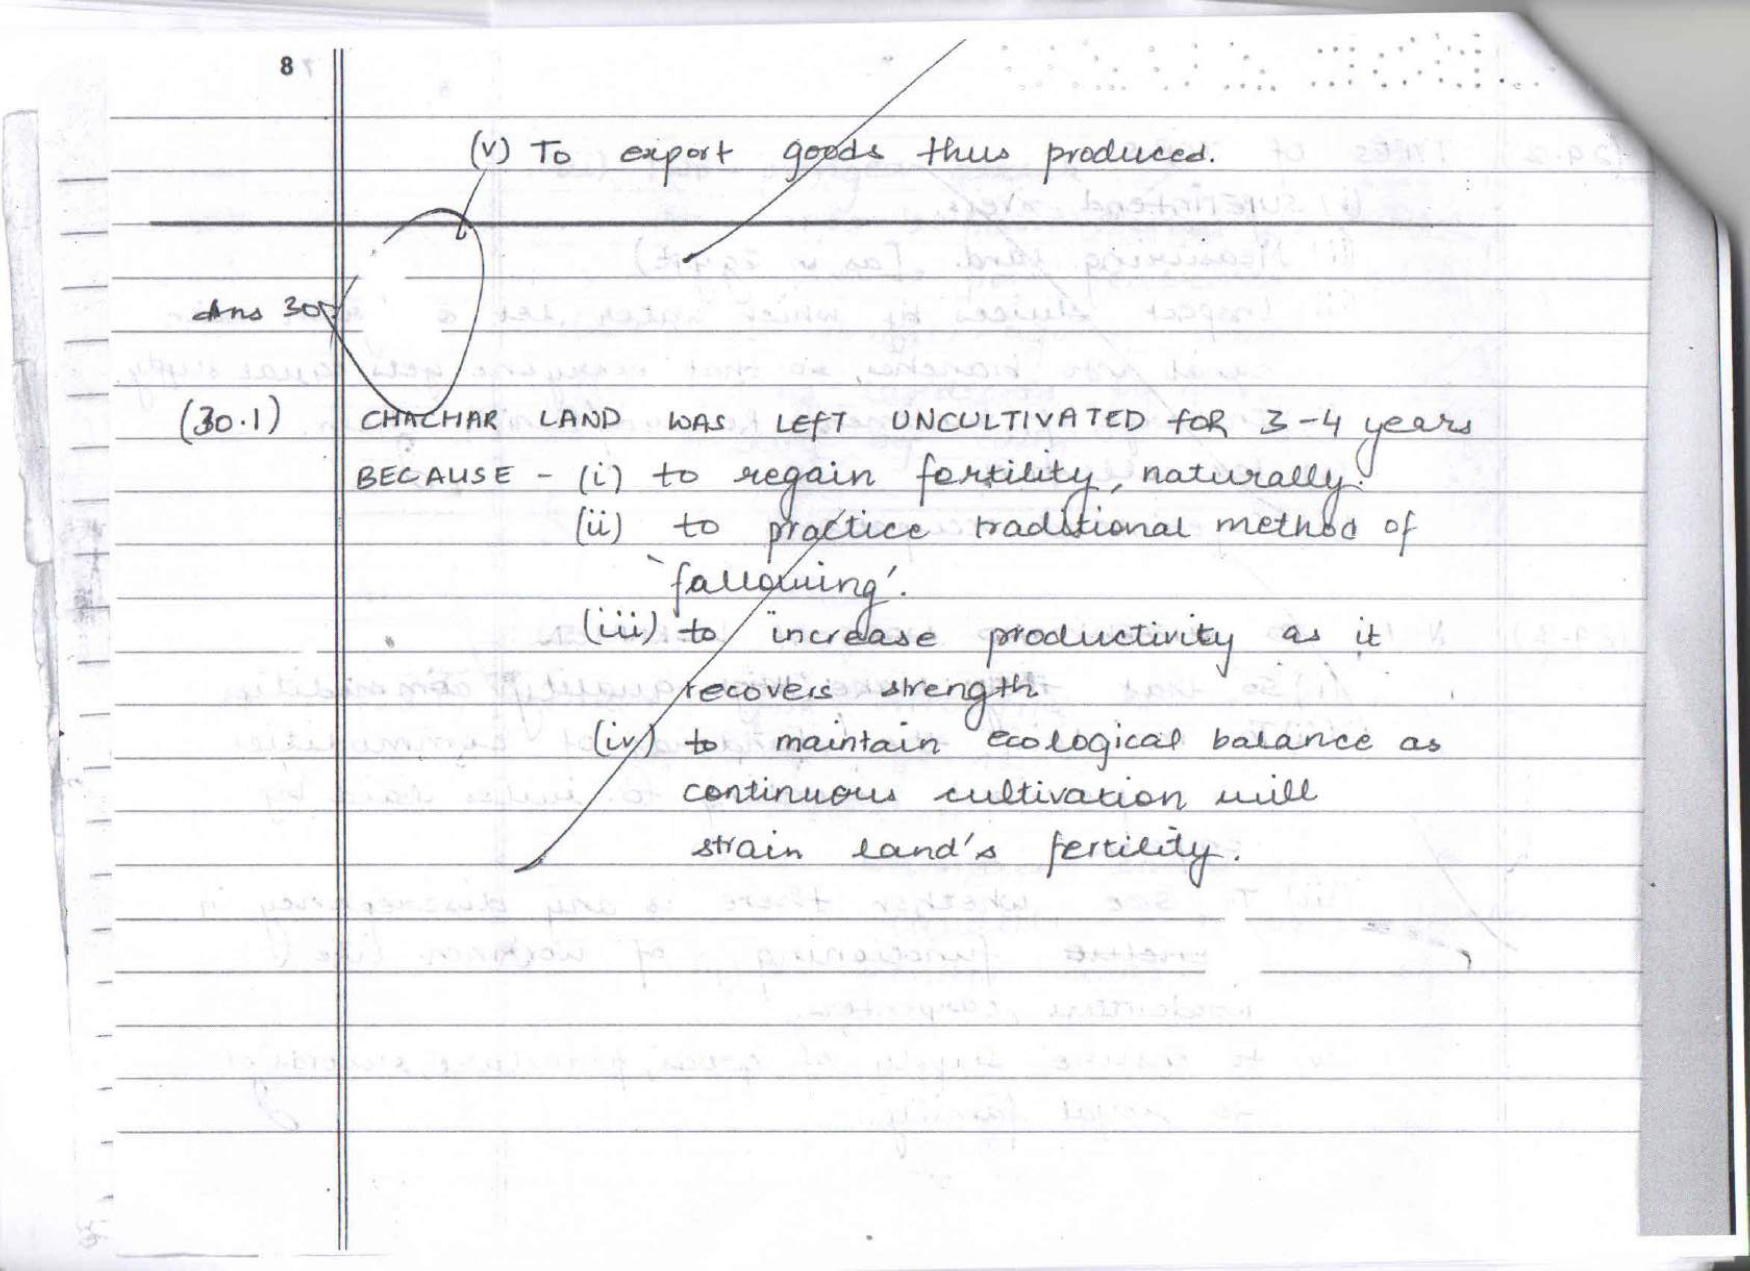 8
(v) To export goods thus produced.
Ans 30
(30.1) CHACHAR LAND WAS LEFT UNCULTIVATED FOR 3-4 years
BECAUSE - (i) to regain fertility, naturally.
(ii) to practice traditional method of
'fallowing'.
(iii) to increase productivity as it
recovers strength
(iv) to maintain ecological balance as
continuous cultivation will
strain land's fertility.